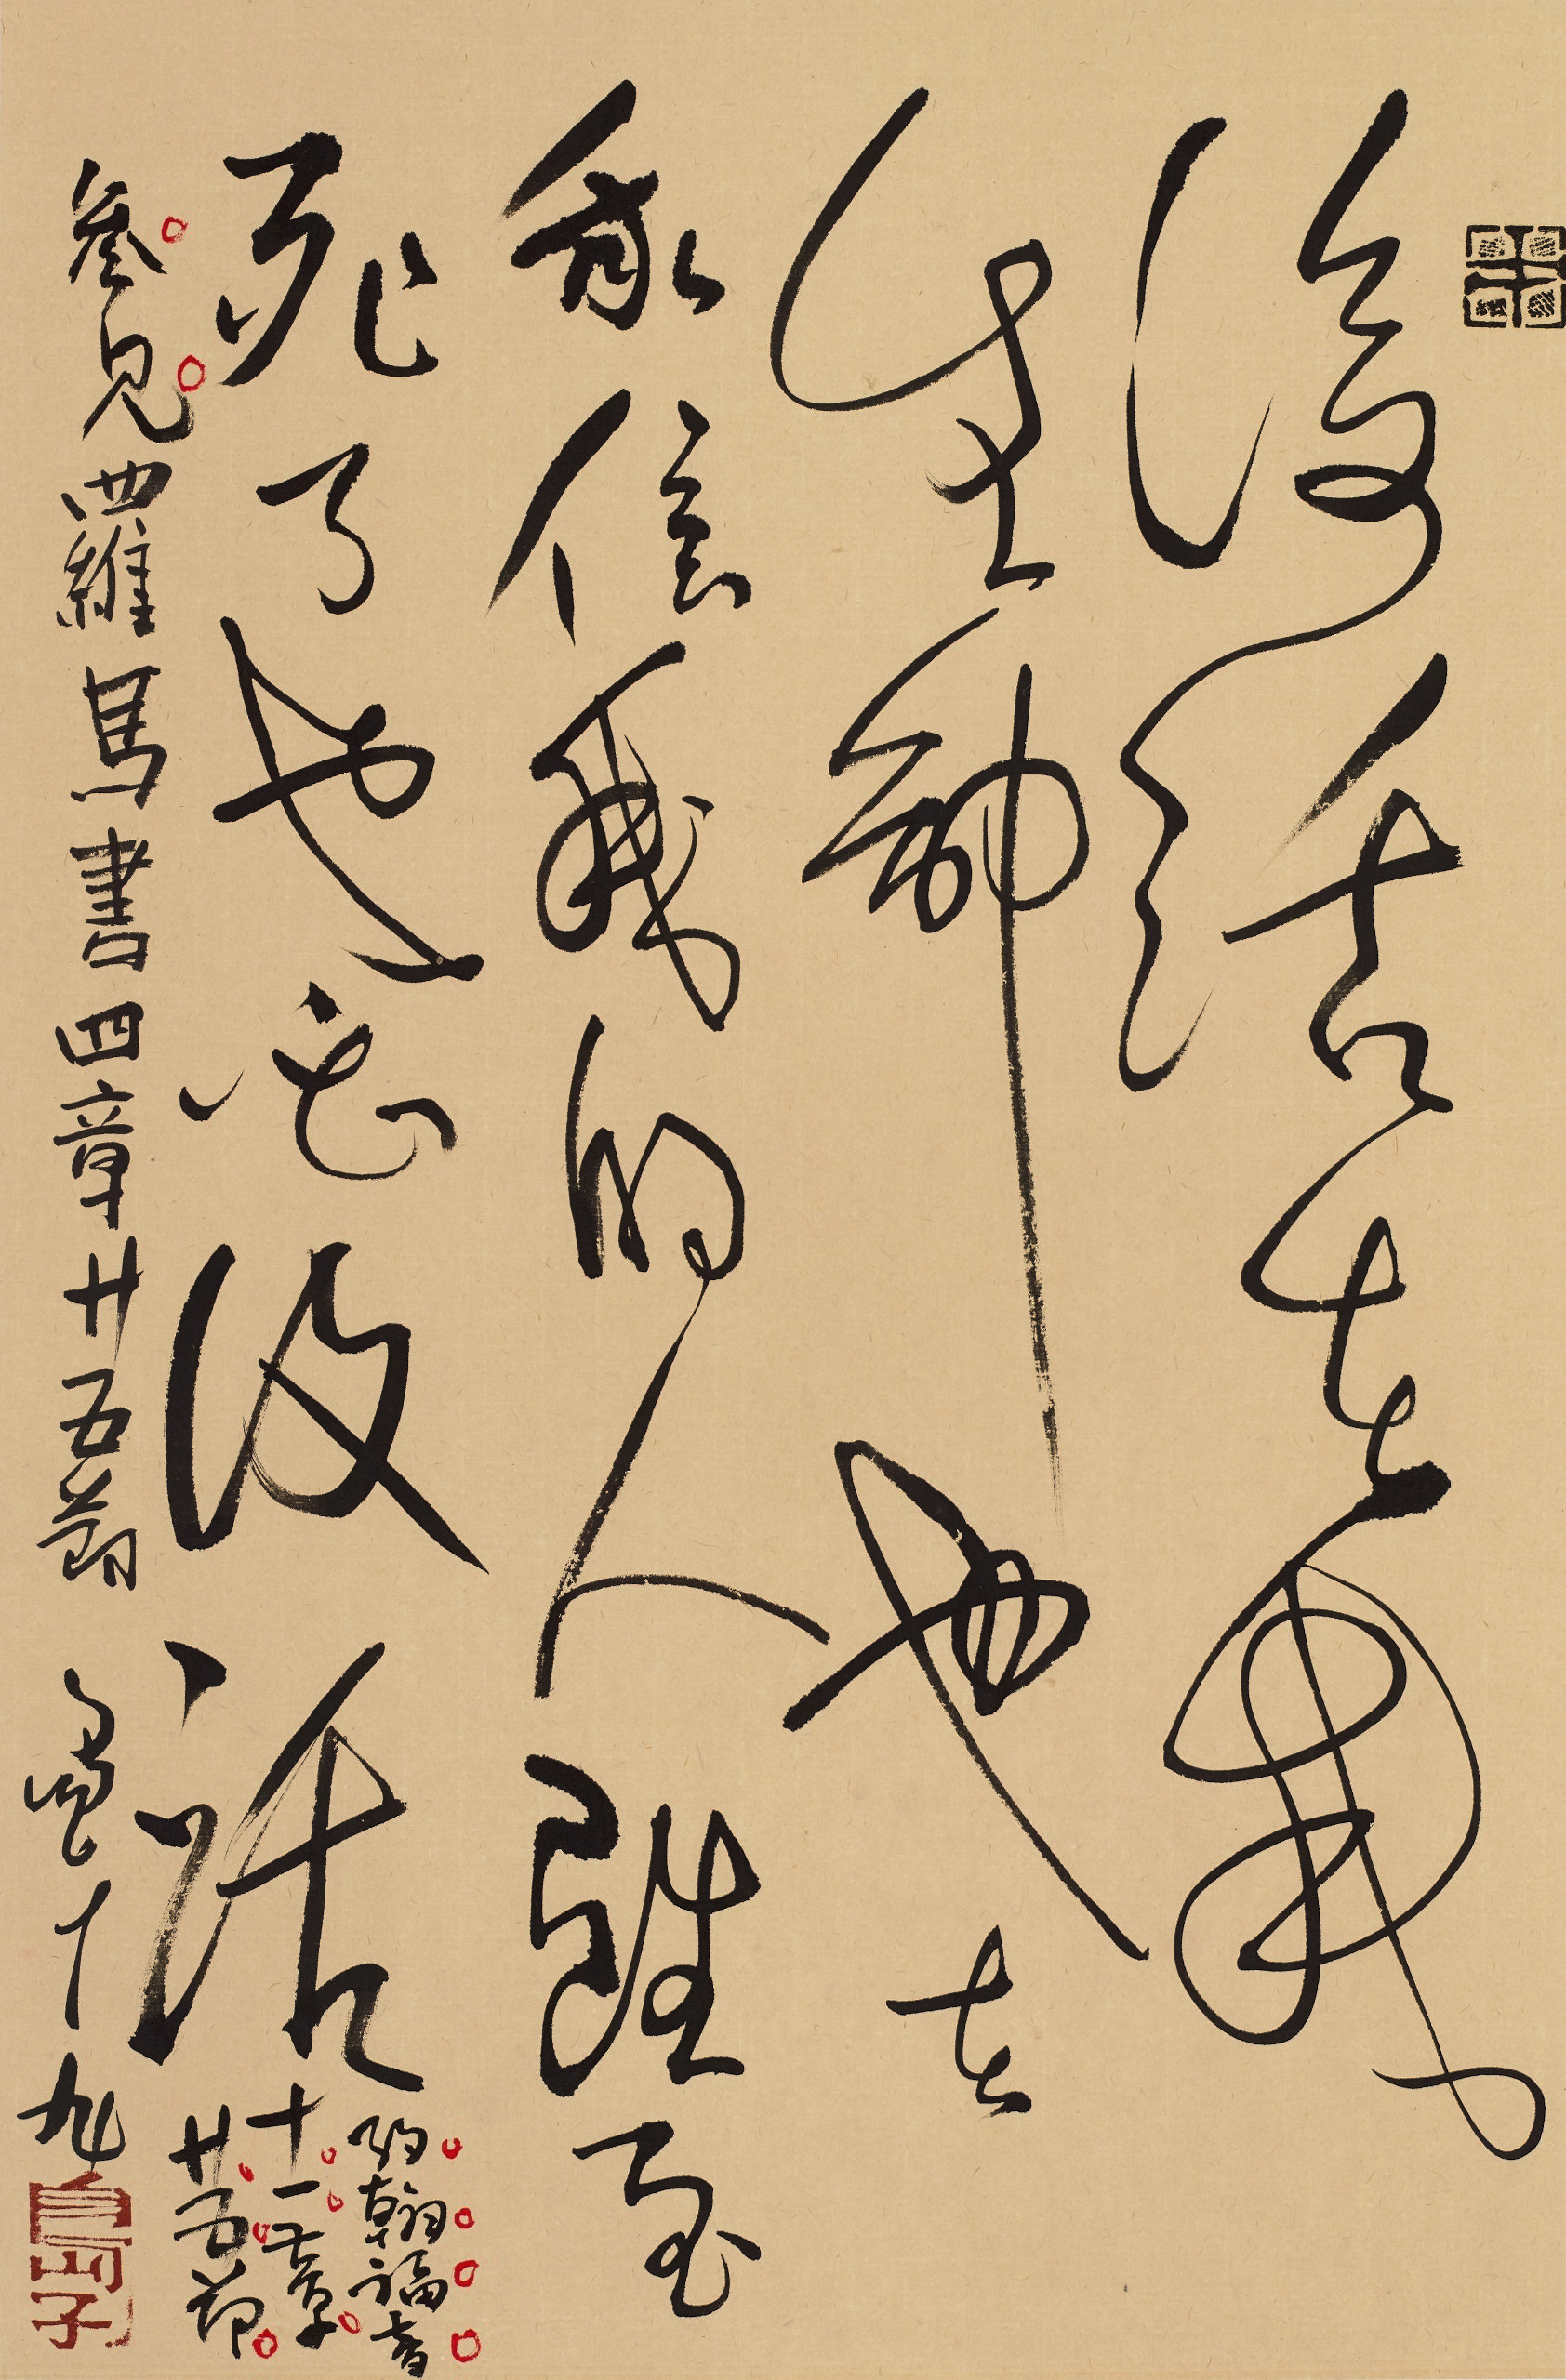 復活在我
生命也在
我信我的人雖至
死了也必復活
約翰福音
十一章
廿五節
參見羅馬書四章廿五節
島子